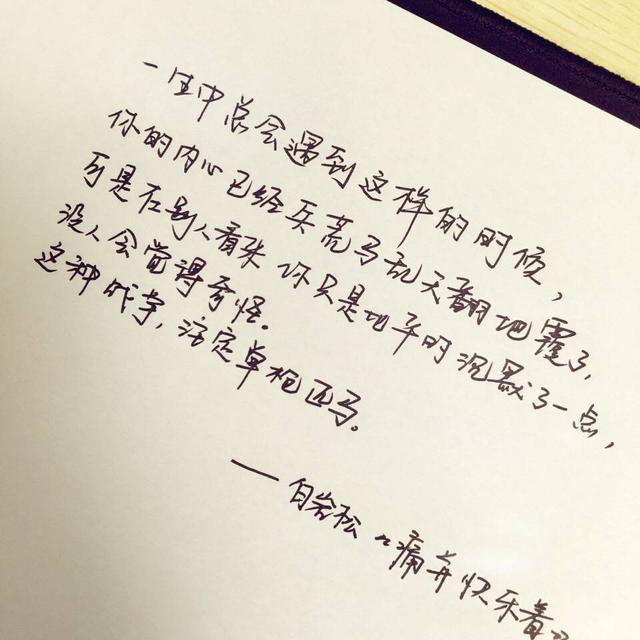 一生中总会遇到这样的时候，
你的内心已经兵荒马乱天翻地覆了，
可是在别人看来 你只是比平时沉默了一点，
没人会觉得奇怪。
这种战争，注定单枪匹马。
——白岩松 “痛并快乐着”